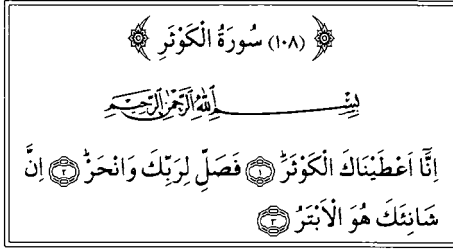 ﴿ (١٠٨) سُورَةُ الْكَوْثَرِ ﴾
بِسْمِ اللّٰهِ الرَّحْمٰنِ الرَّحِيمِ
اِنَّٓا اَعْطَيْنَاكَ الْكَوْثَرَۜ ﴿١﴾ فَصَلِّ لِرَبِّكَ وَانْحَرْۜ ﴿٢﴾ اِنَّ
شَانِئَكَ هُوَ الْاَبْتَرُ ﴿٣﴾